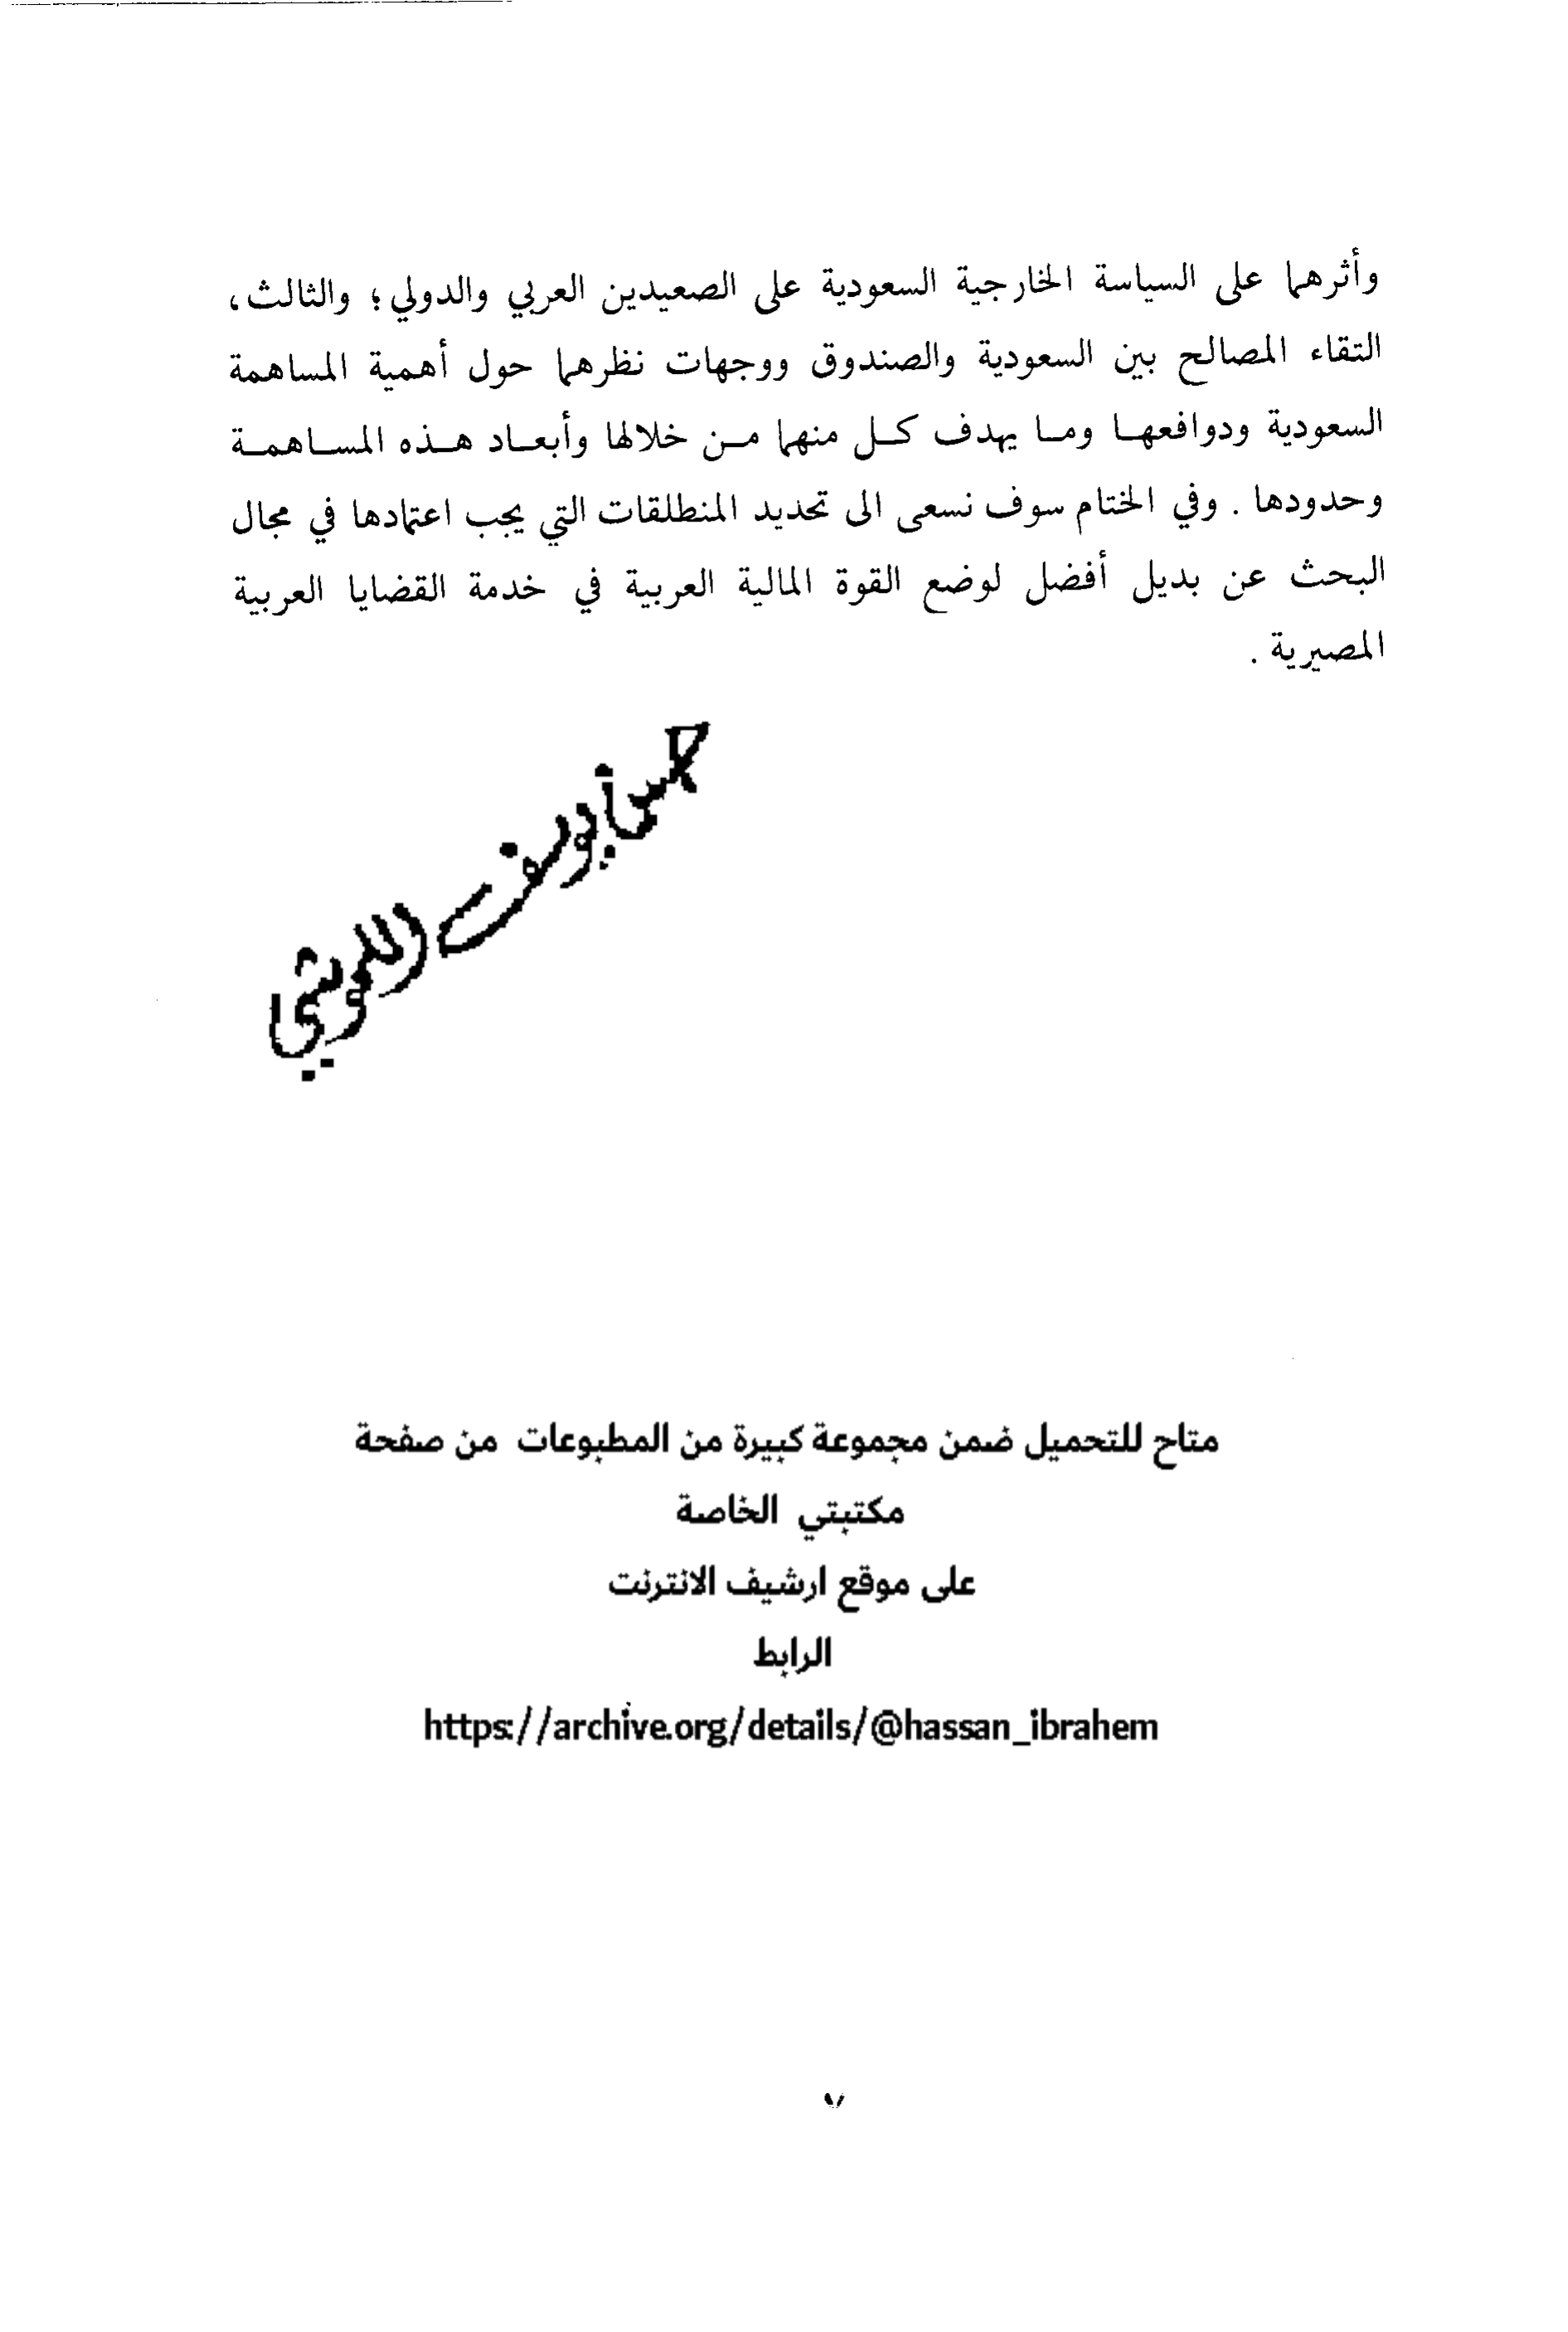 وأثرهما على السياسة الخارجية السعودية على الصعيدين العربي والدولي؛ والثالث،
التقاء المصالح بين السعودية والصندوق ووجهات نظرهما حول أهمية المساهمة
السعودية ودوافعها وما يهدف كل منهما من خلالها وأبعاد هذه المساهمة
وحدودها . وفي الختام سوف نسعى الى تحديد المنطلقات التي يجب اعتمادها في مجال
البحث عن بديل أفضل لوضع القوة المالية العربية في خدمة القضايا العربية
المصيرية .
متاح للتحميل ضمن مجموعة كبيرة من المطبوعات من صفحة
مكتبتي الخاصة
على موقع ارشيف الانترنت
الرابط
https://archive.org/details/@hassan_ibrahem
٧